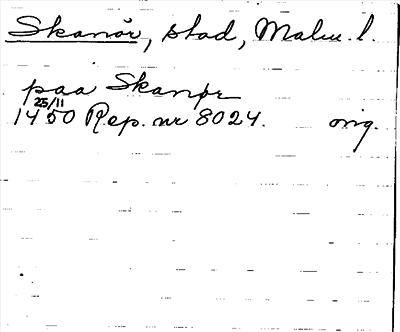 Skanör, stad, Malm. l.
paa Skanpr
25/11
1450 Rep. nr 8024. orig.